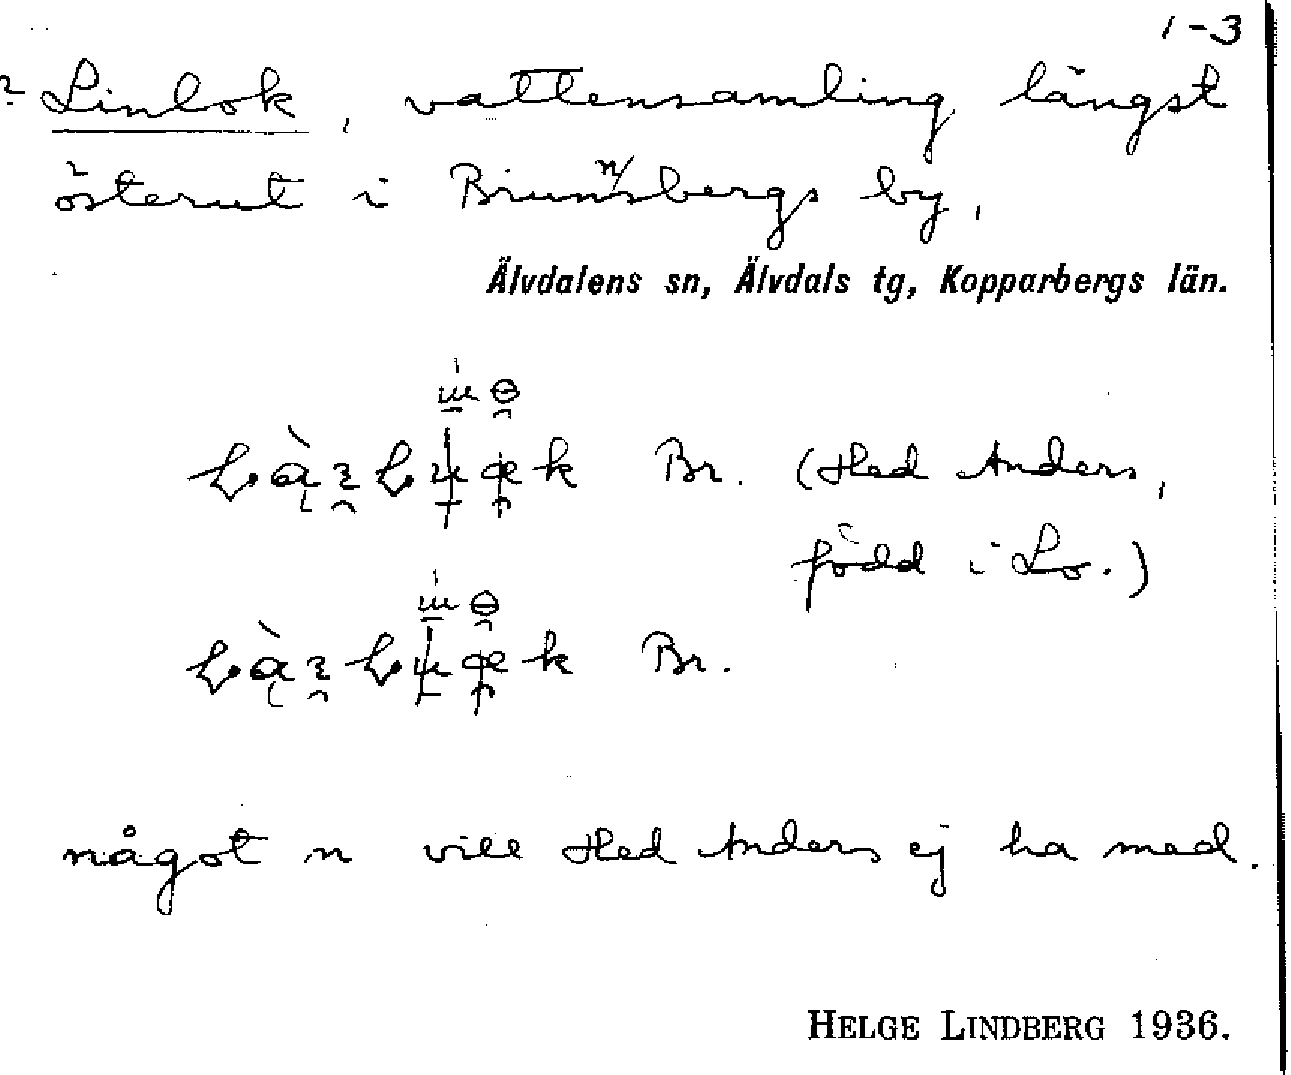 1-3
? Linlok, vattensamling längst
österut i Brunnsbergs by,
Älvdalens sn, Älvdals tg, Kopparbergs län.
Br. (Hed Anders,
född i Lo.)
Br.
något n vill Hed Anders ej ha med.
HELGE LINDBERG 1936.